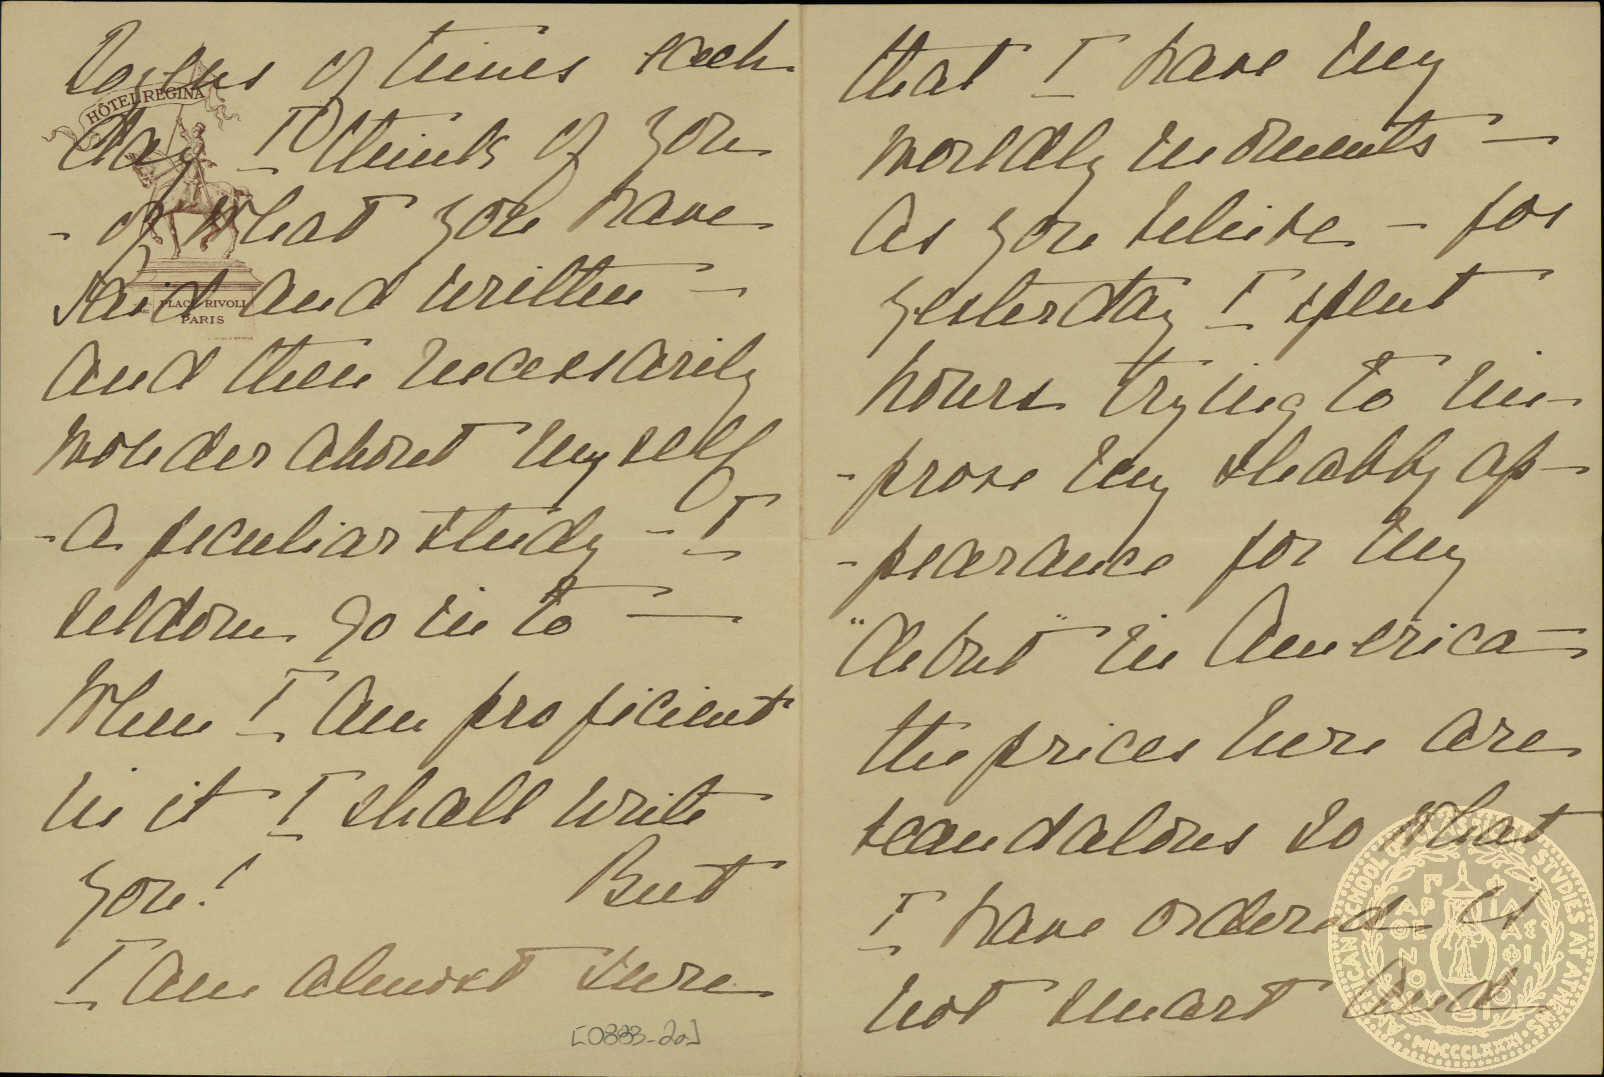 Dozens of times each
HÔTEL REGINA
day I think of you
- of what you have
said and written -
PLACE RIVOLI
PARIS
and then necessarily
wonder about myself
- a peculiar study - I
seldom go in to -
When I am proficient
in it I shall write
you! But
I am almost sure
[0333-20]
that I have my
worldly moments -
as you believe - for
yesterday I spent
hours trying to im-
- prove my shabby ap-
- pearance for my
"debut" in America -
the prices here are
scandalous so what
I have ordered is
not smart and
AMERICAN SCHOOL OF CLASSICAL STUDIES AT ATHENS
MDCCCLXXXI